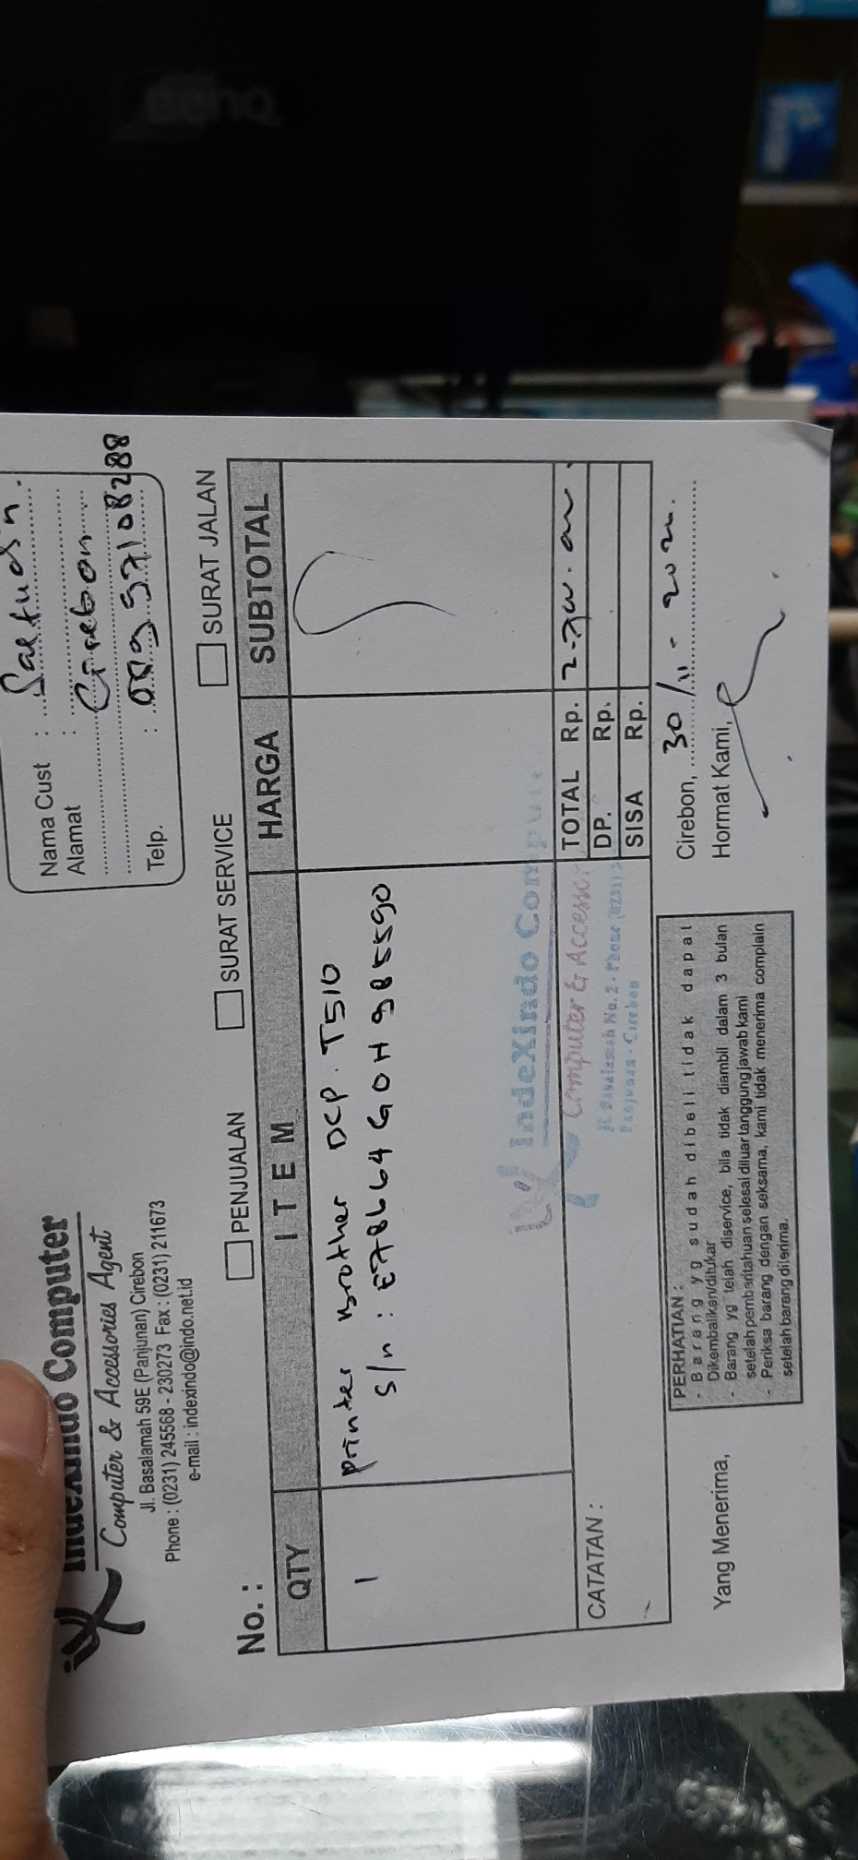 BenQ
Indexindo Computer
Computer & Accessories Agent
Jl. Basalamah 59E (Panjunan) Cirebon
Phone : (0231) 245568 - 230273 Fax : (0231) 211673
e-mail : indexindo@indo.net.id
Nama Cust :
Alamat : Cirebon
Telp. :
No. :
PENJUALAN SURAT SERVICE SURAT JALAN
QTY ITEM HARGA SUBTOTAL
1 Printer Brother DCP. T510
S/n : E78664G0H985590
IndeXindo Computer
Computer & Accesso
Jl. Basalamah No. 2 - Phone (0231)
Panjunan - Cirebon
TOTAL Rp.
DP. Rp.
SISA Rp.
CATATAN :
Cirebon, 30/11 - 2020.
Hormat Kami,
Yang Menerima,
PERHATIAN :
- Barang yg sudah dibeli tidak dapat
Dikembalikan/ditukar
- Barang yg telah diservice, bila tidak diambil dalam 3 bulan
setelah pemberitahuan selesai diluar tanggung jawab kami
- Periksa barang dengan seksama, kami tidak menerima complain
setelah barang diterima.